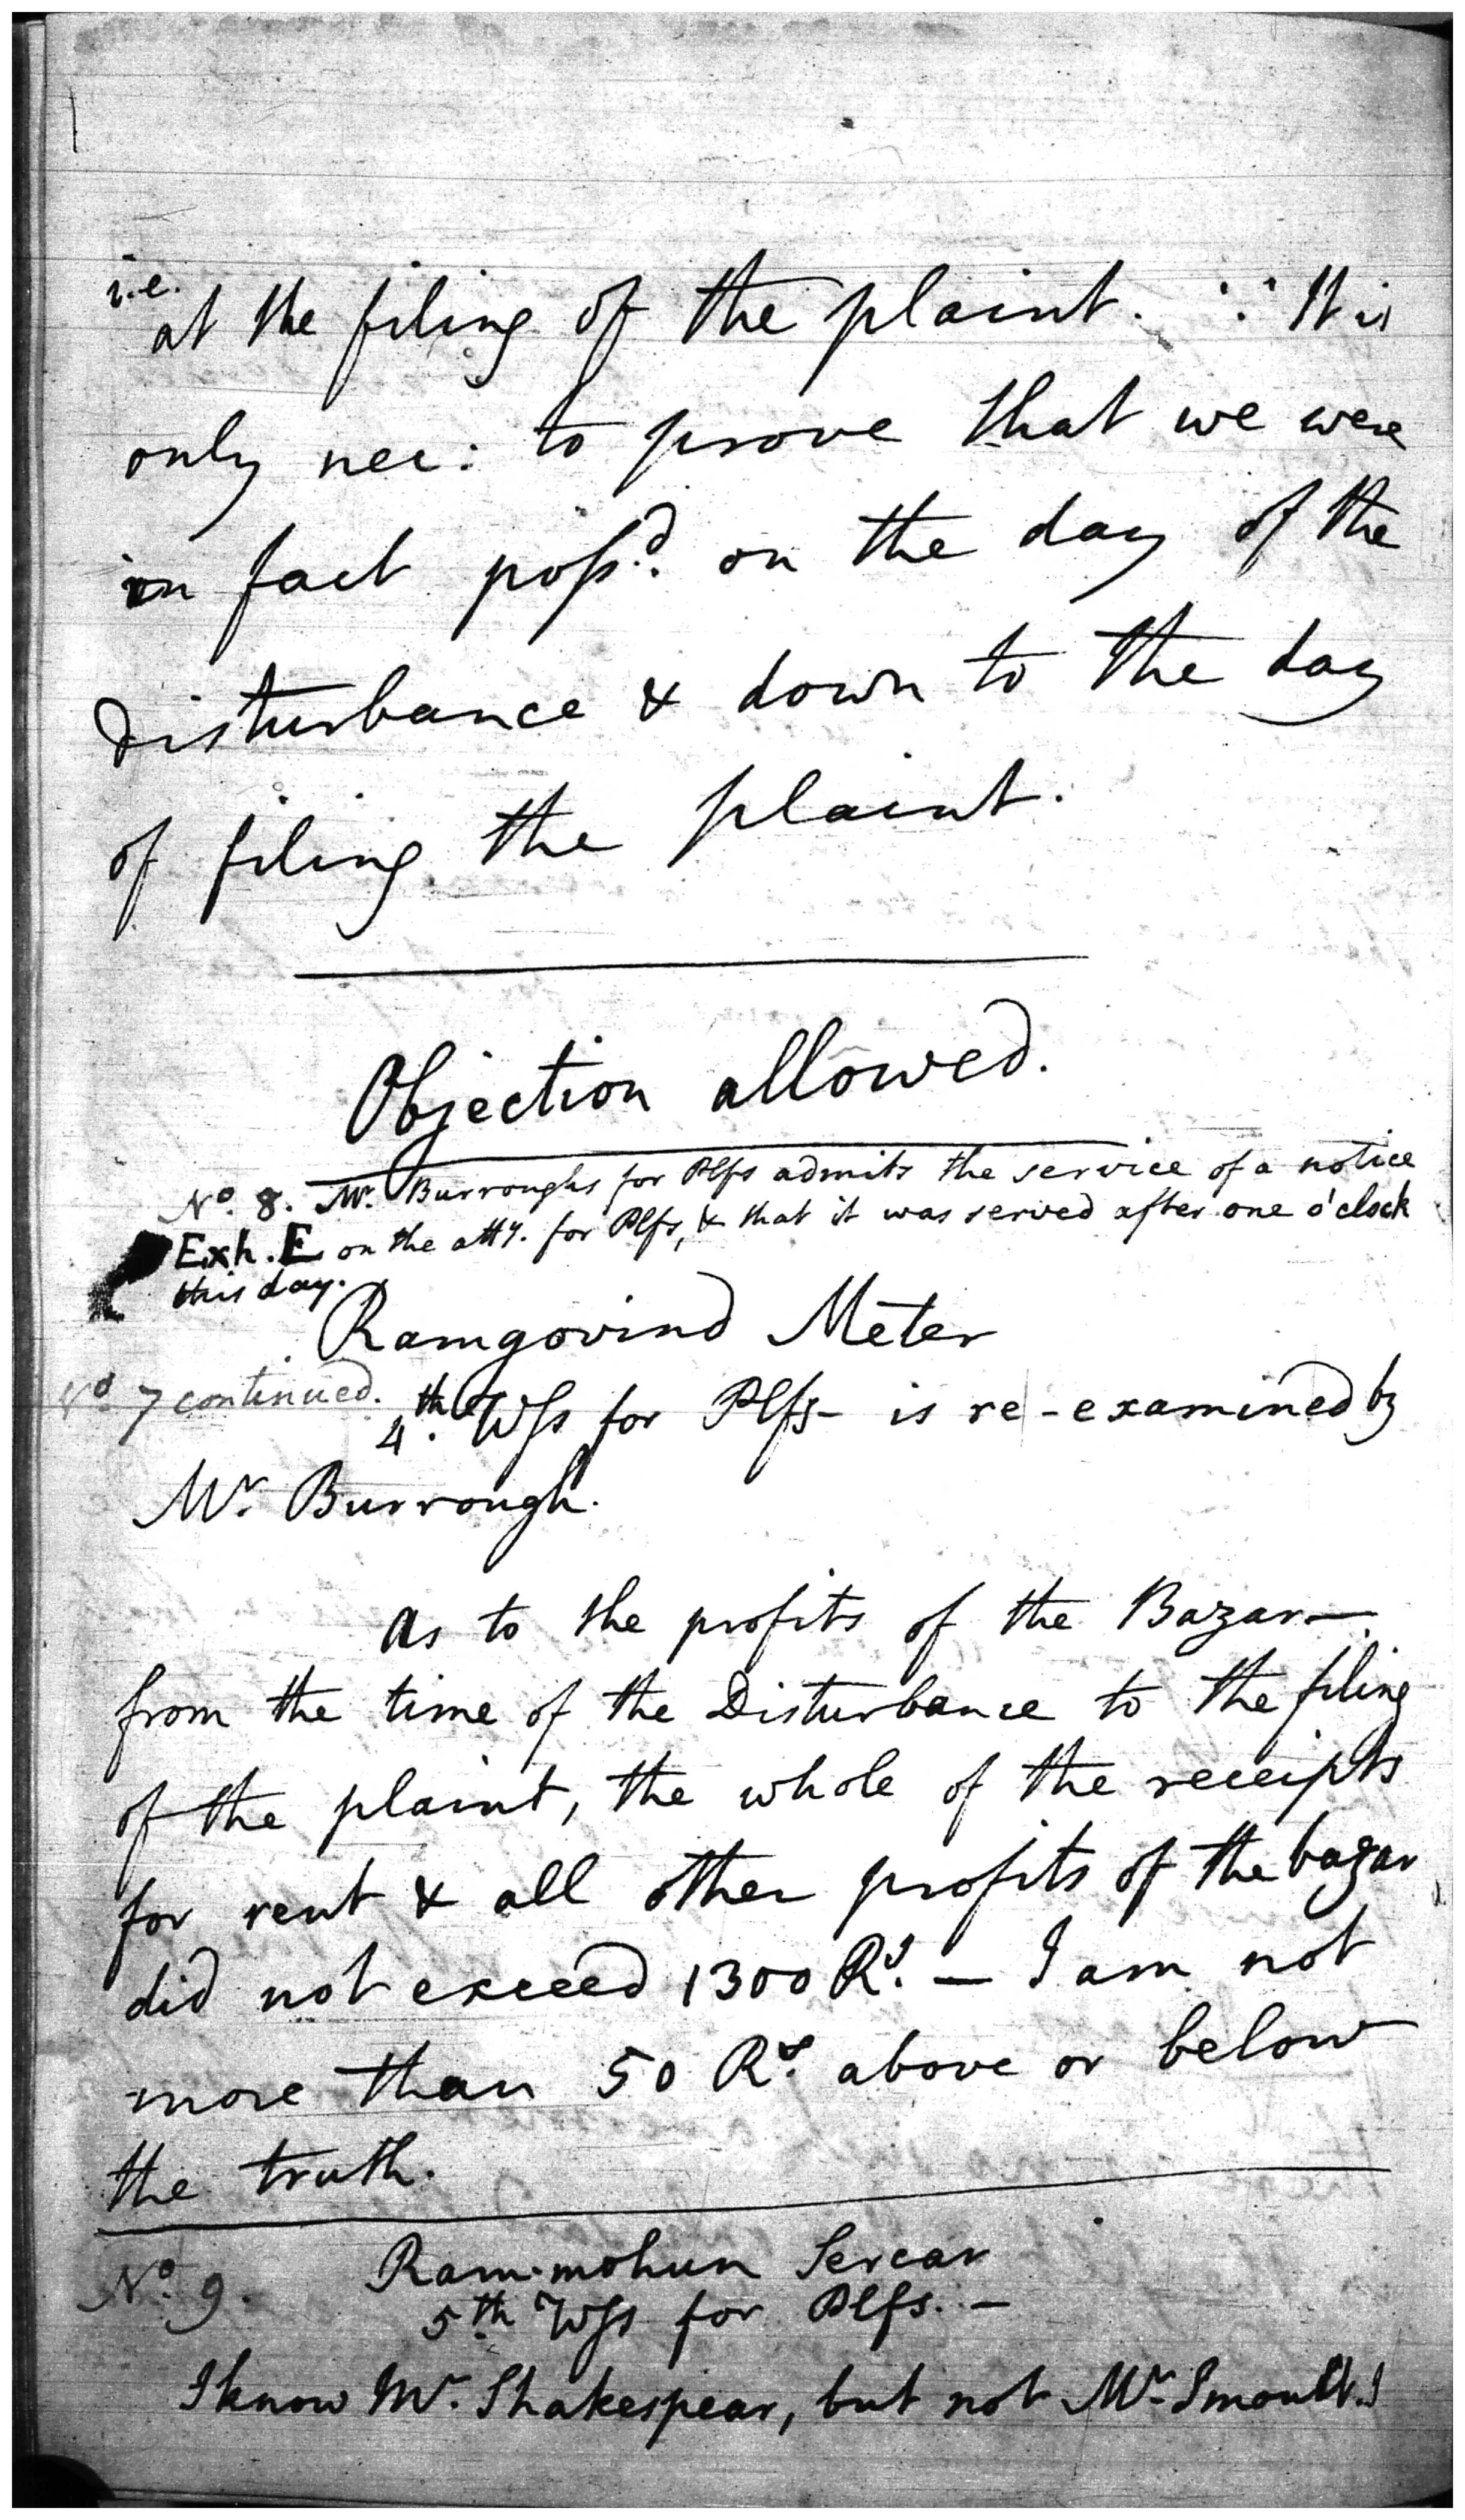 i.e. at the filing of the plaint. ∵ It is
only nec: to prove that we were
in fact poſsd. on the day of the
disturbance & down to the day
of filing the plaint.
Objection allowed.
No. 8. Mr. Burroughs for Plfs admits the service of a notice
Exh. E on the atty. for Plfs, & that it was served after one o'clock
this day.
Ramgovind Meter
No 7 continued. 4th. Wſs for Plfs - is re-examined by
Mr. Burrough.
As to the profits of the Bazar—
from the time of the Disturbance to the filing
of the plaint, the whole of the receipts
for rent & all other profits of the bazar
did not exceed 1300 Rs. — I am not
more than 50 Rs. above or below
the truth.
No. 9. Ram-mohun Sercar
5th Wſs for Plfs. —
I know Mr. Shakespear, but not Mr. Smoult. I